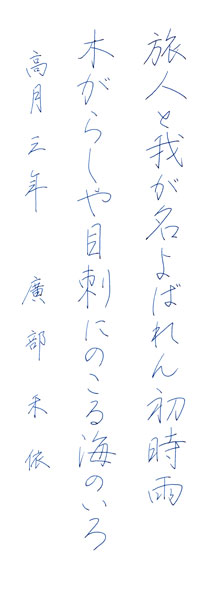 旅人と我が名よばれん初時雨
木がらしや目刺にのこる海のいろ
高月三年 廣部禾依